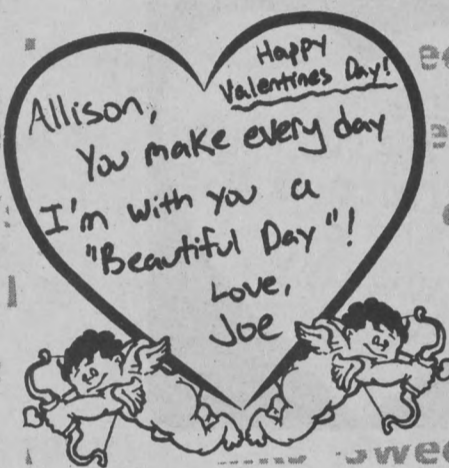 Happy
Valentines Day!
Allison,
You make every day
I'm with you a
"Beautiful Day"!
Love,
Joe